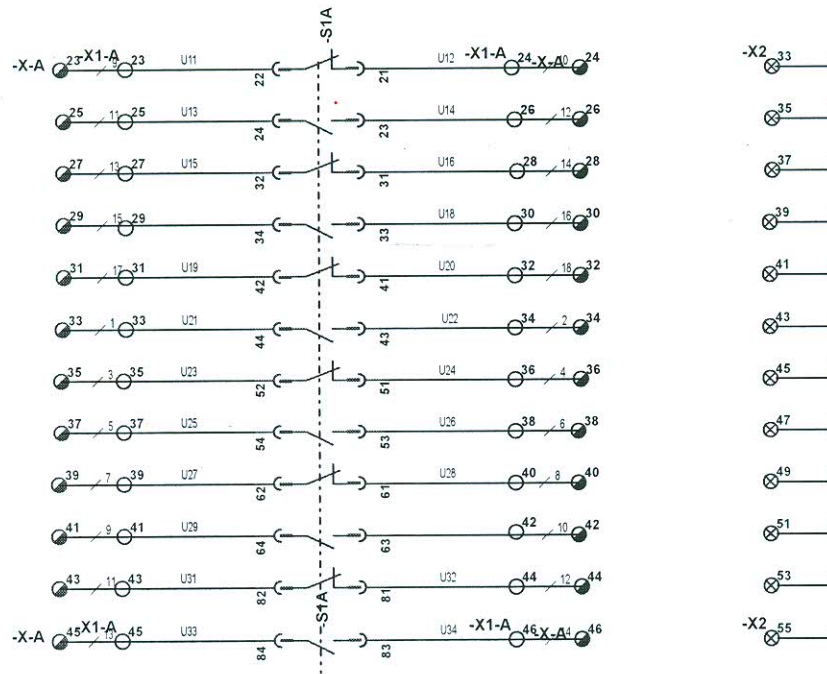 -S1A
-X-A 23 -X1-A 9 23 U11 22 21 U12 -X1-A 24 -X-A 10 24 -X2 33
25 11 25 U13 24 23 U14 26 12 26 35
27 13 27 U15 32 31 U16 28 14 28 37
29 15 29 34 33 U18 30 16 30 39
31 17 31 U19 42 41 U20 32 18 32 41
33 1 33 U21 44 43 U22 34 2 34 43
35 3 35 U23 52 51 U24 36 4 36 45
37 5 37 U25 54 53 U26 38 6 38 47
39 7 39 U27 62 61 U28 40 8 40 49
41 9 41 U29 64 63 42 10 42 51
43 11 43 U31 82 81 U32 44 12 44 53
-S1A
-X-A 45 -X1-A 13 45 U33 84 83 U34 -X1-A 46 -X-A 46 -X2 55